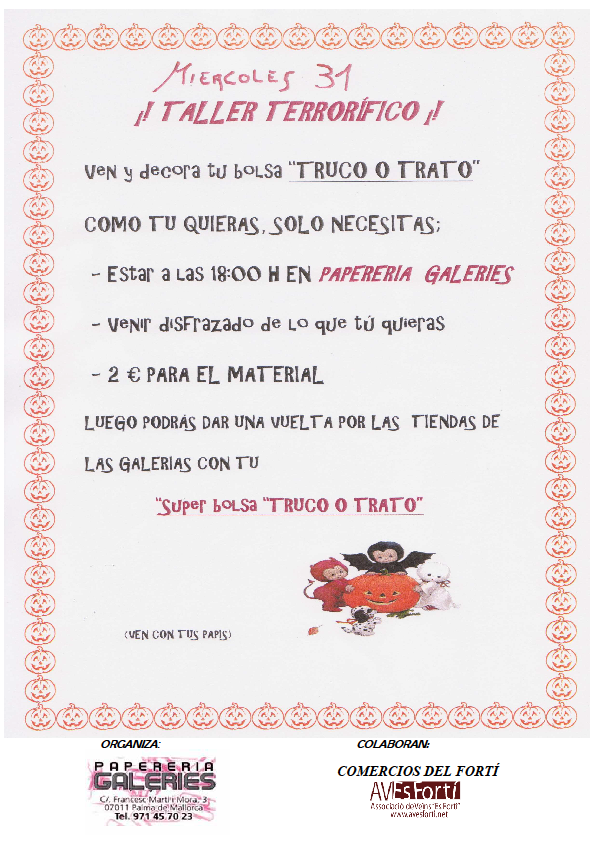 MIERCOLES 31
¡! TALLER TERRORÍFICO ¡!
Ven y decora tu bolsa "TRUCO O TRATO"
COMO TU QUIERAS, SOLO NECESITAS;
- Estar a las 18:00 H EN PAPERERIA GALERIES
- Venir disfrazado de lo que tú quieras
- 2 € PARA EL MATERIAL
LUEGO PODRÁS DAR UNA VUELTA POR LAS TIENDAS DE
LAS GALERIAS CON TU
"Super bolsa "TRUCO O TRATO"
(VEN CON TUS PAPIS)
ORGANIZA:
COLABORAN:
PAPERERIA
GALERIES
C/. Francesc Martí i Mora, 3
07011 Palma de Mallorca
Tel. 971 45 70 23
COMERCIOS DEL FORTÍ
AVEsFortí
Associació de Veïns "Es Fortí"
www.avesforti.net